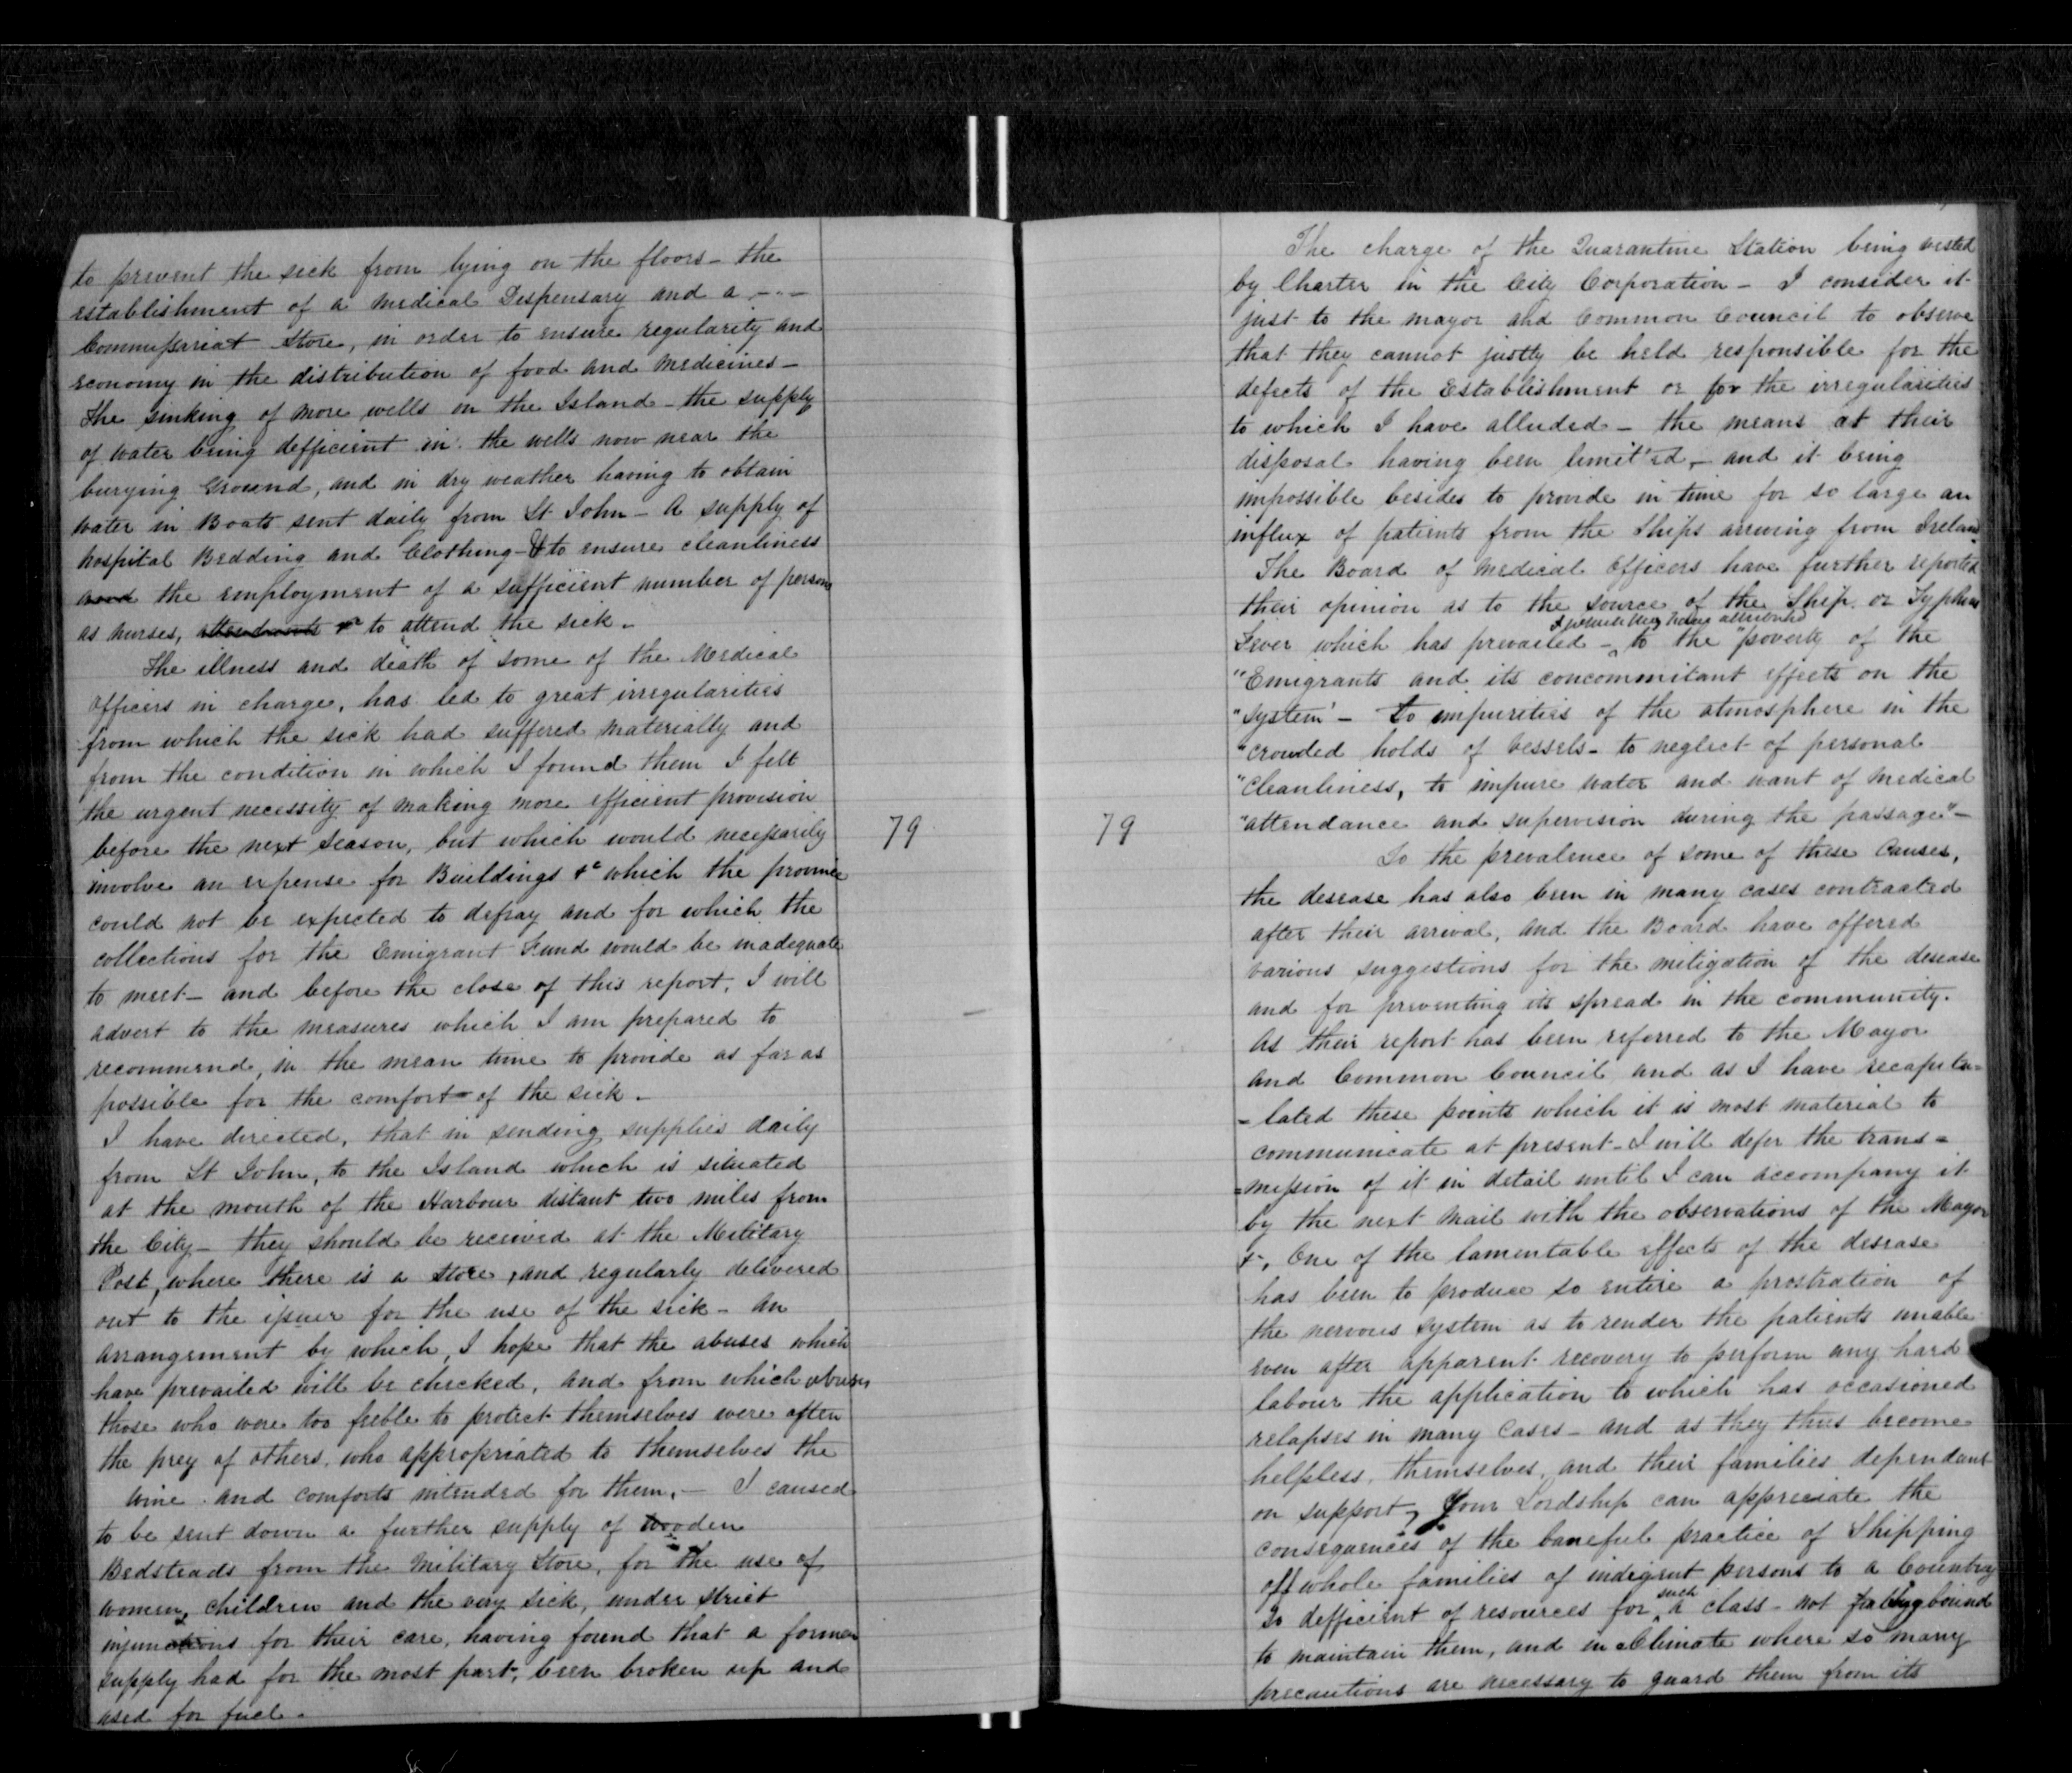 to prevent the sick from lying on the floors - the
establishment of a medical Dispensary and a - - -
Commissariat Store, in order to ensure regularity and
economy in the distribution of food and medicines -
The sinking of more wells on the Island - the supply
of water being defficient in the wells now near the
burying Ground, and in dry weather having to obtain
water in Boats sent daily from St John - A supply of
hospital Bedding and Clothing - & to ensure cleanliness
and the employment of a sufficient number of persons
as nurses, attendants &c to attend the sick -
The illness and death of some of the Medical
Officers in charge, has led to great irregularities
from which the sick had suffered materially and
from the condition in which I found them I felt
the urgent necessity of making more efficient provision
before the next Season, but which would necessarily
involve an expense for Buildings &c which the province
could not be expected to defray and for which the
collections for the Emigrant Fund would be inadequate
to meet - and before the close of this report, I will
advert to the measures which I am prepared to
recommend, in the mean time to provide as far as
possible for the comfort of the sick -
I have directed, that in sending supplies daily
from St John, to the Island which is situated
at the mouth of the Harbour distant two miles from
the City - they should be received at the Military
Post, where there is a Store, and regularly delivered
out to the issuer for the use of the sick - an
arrangement by which, I hope that the abuses which
have prevailed will be checked, and from which abuses
those who were too feeble to protect themselves were often
the prey of others, who appropriated to themselves the
wine and comforts intended for them, - I caused
to be sent down a further supply of wooden
Bedsteads from the Military Store, for the use of
women, children and the very sick, under strict
injunctions for their care, having found that a former
supply had for the most part, been broken up and
used for fuel.
79
79
The charge of the Quarantine Station being vested
by Charter in the City Corporation - I consider it
just to the mayor and Common Council to observe
that they cannot justly be held responsible for the
defects of the Establishment or for the irregularities
to which I have alluded - the means at their
disposal having been limit'ed, - and it being
impossible besides to provide in time for so large an
influx of patients from the Ships arriving from Ireland.
The Board of Medical Officers have further reported
their opinion as to the source of the Ship or Typhus
having attributed
Fever which has prevailed - to the "poverty of the
"Emigrants and its concommitant effects on the
"system' - to impurities of the atmosphere in the
"crowded holds of vessels - to neglect of personal
"cleanliness, to impure water and want of medical
"attendance and supervision during the passage" -
To the prevalence of some of these Causes,
the desease has also been in many cases contracted
after their arrival, and the Board have offered
various suggestions for the mitigation of the desease
and for preventing its spread in the community.
As their report has been referred to the Mayor
and Common Council and as I have recapitu=
=lated these points which it is most material to
communicate at present - I will defer the trans=
=mission of it in detail until I can accompany it
by the next Mail with the observations of the Mayor
&c, One of the lamentable effects of the desease
has been to produce so entire a prostration of
the nervous system as to render the patients unable
even after apparent recovery to perform any hard
labour the application to which has occasioned
relapses in many Cases - and as they thus become
helpless, themselves, and their families dependant
on support, Your Lordship can appreciate the
consequences of the baneful practice of Shipping
off whole families of indigent persons to a Country
such
so defficient of resources for a class - not bound
to maintain them, and in a Climate where so many
precautions are necessary to guard them from its